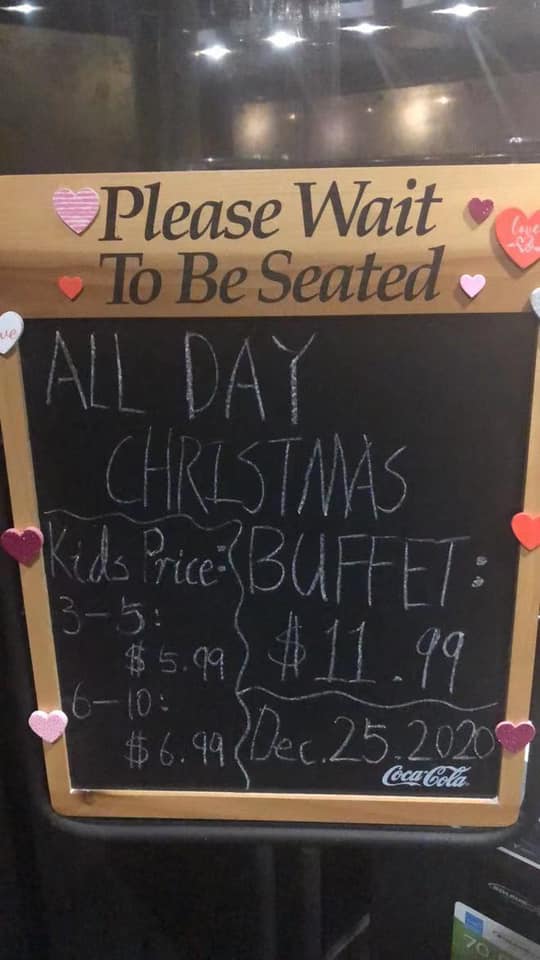 Please Wait
To Be Seated
love
ve
ALL DAY
CHRISTMAS
BUFFET:
$11.99
Kids Price:
3-5:
$5.99
6-10:
$6.99
Dec.25.2020
Coca-Cola
70